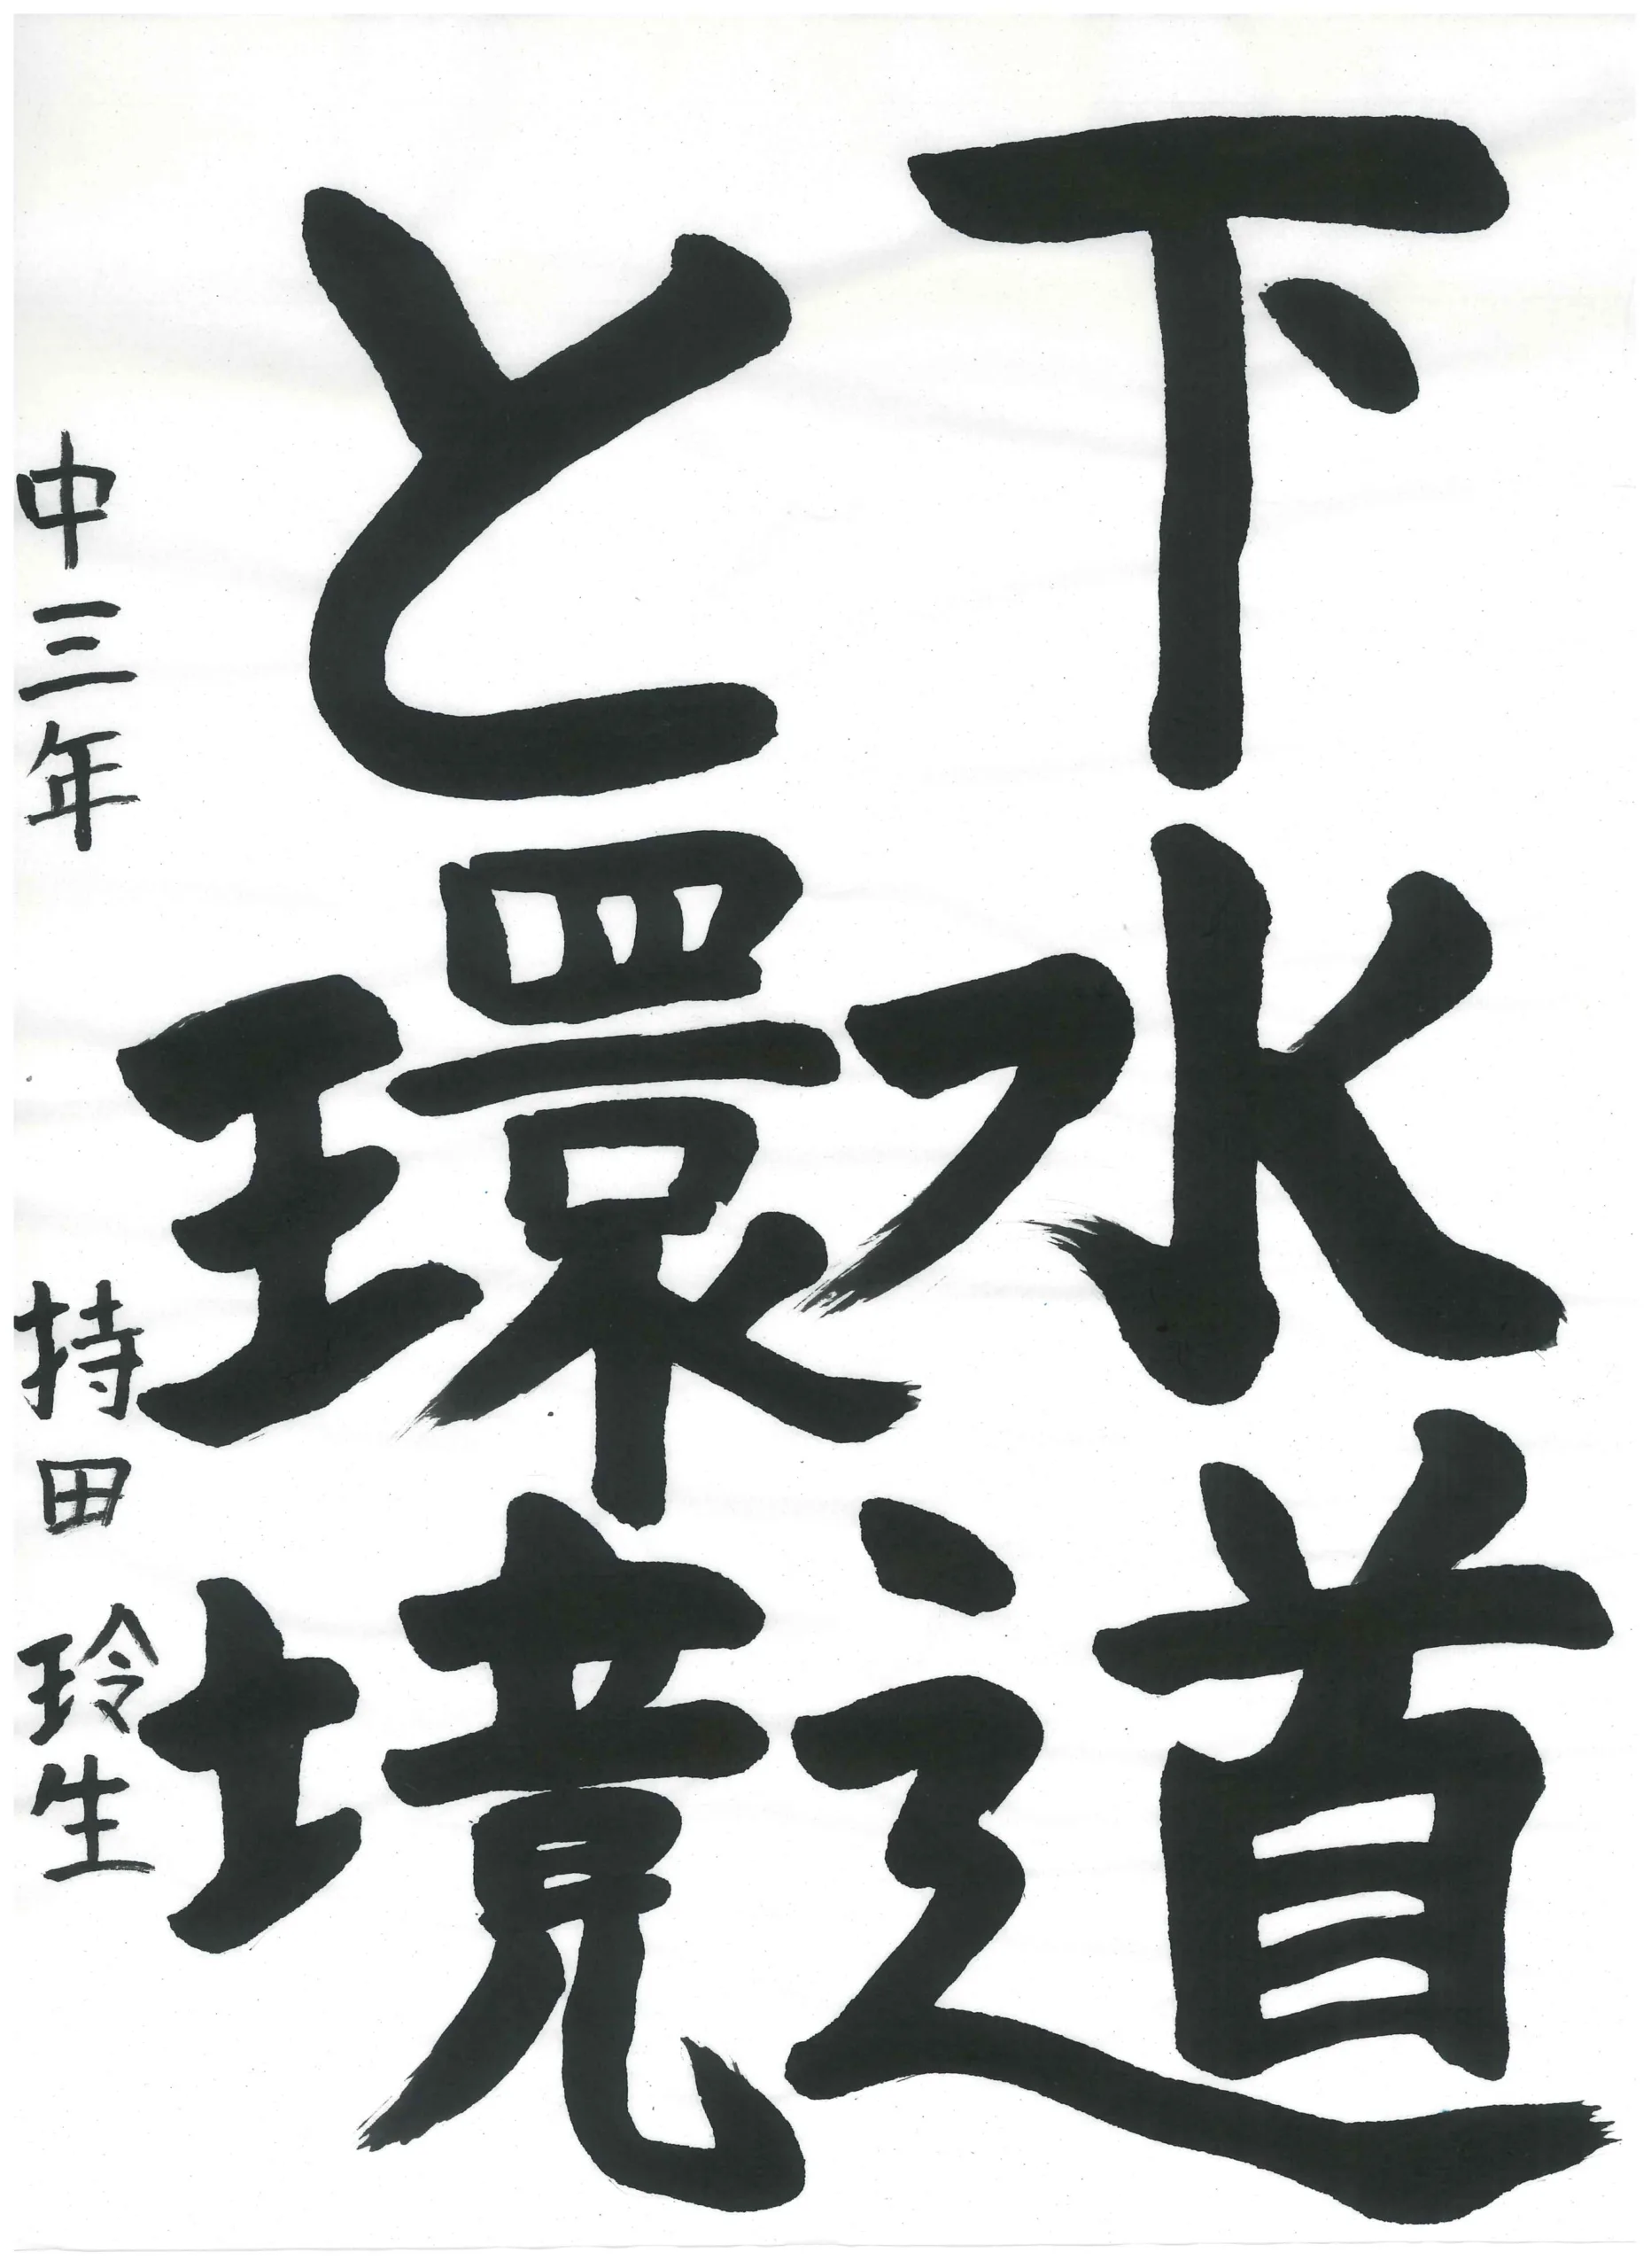 下水道
と環境
中三年 持田 玲生